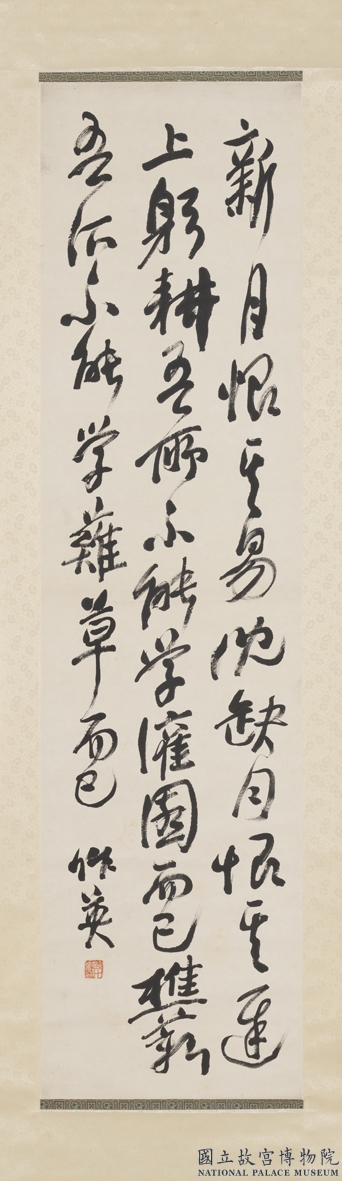 新月恨其易沈缺月恨其遲
上躬耕吾所不能学灌園而已樵薪
吾所不能学薙草而已 作英
國立故宮博物院
NATIONAL PALACE MUSEUM